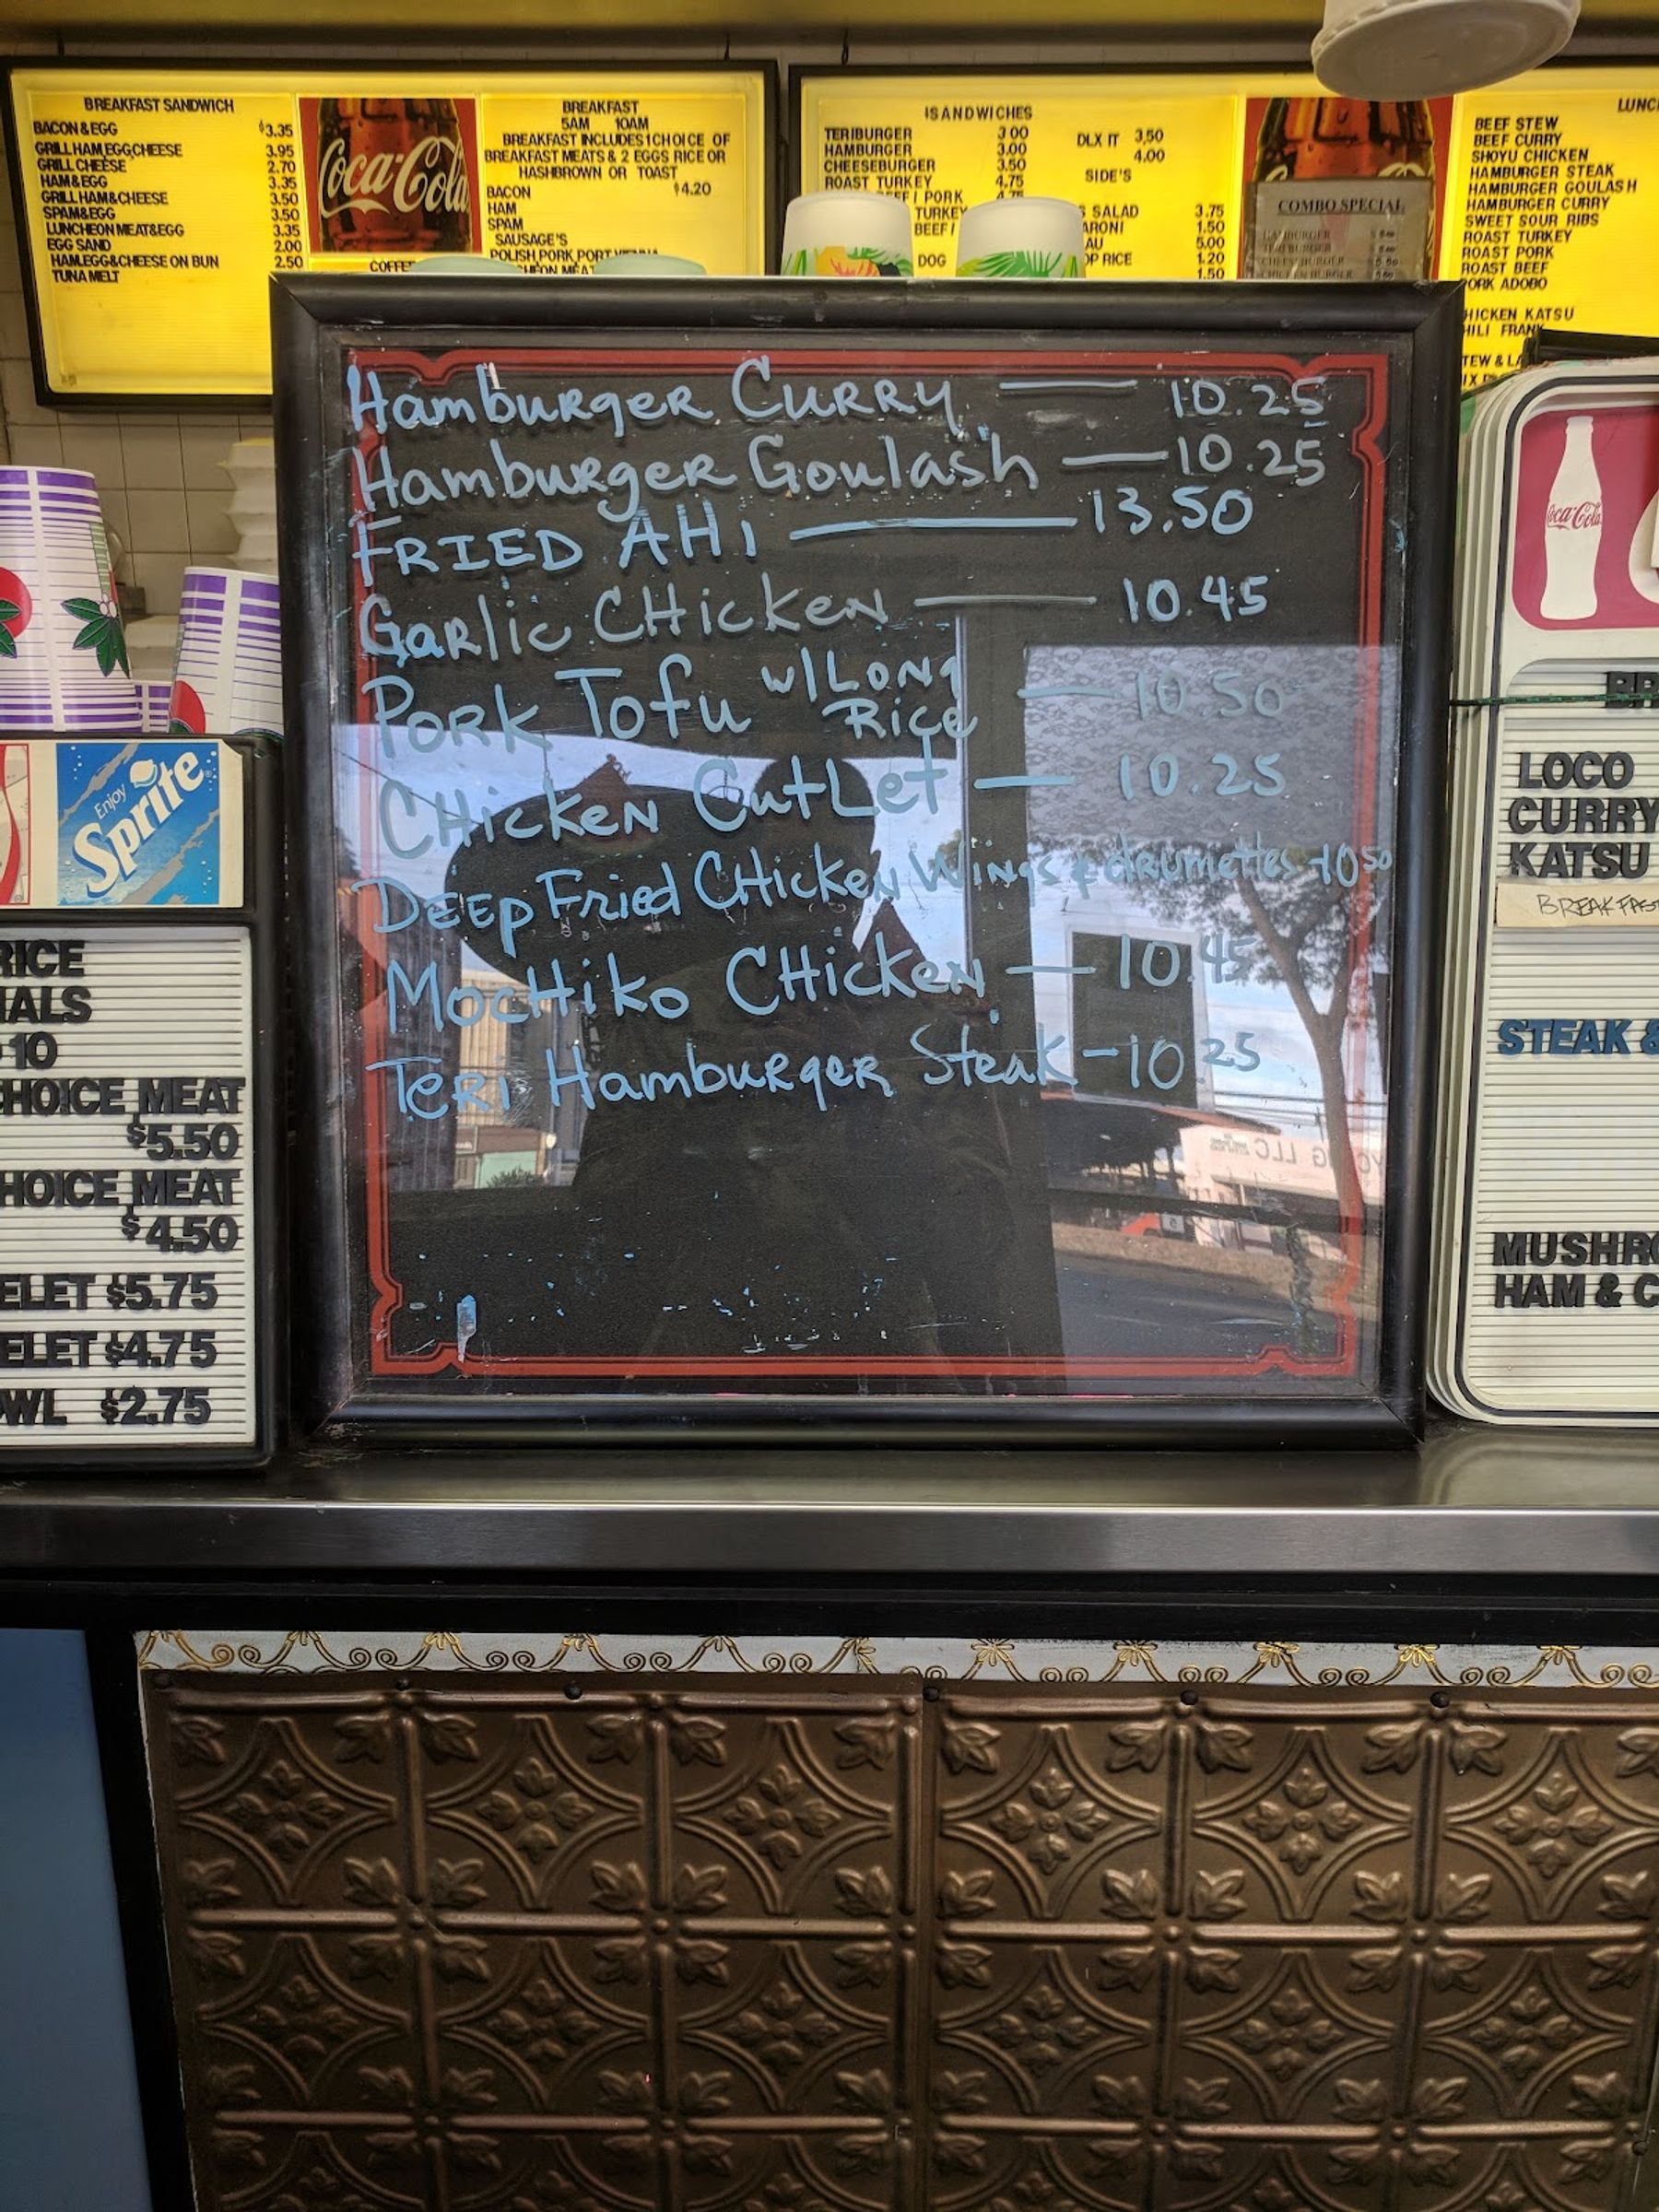 BREAKFAST SANDWICH
BACON & EGG $3.35
GRILL HAM,EGG,CHEESE 3.95
GRILL CHEESE 2.70
HAM & EGG 3.35
GRILL HAM & CHEESE 3.50
SPAM & EGG 3.50
LUNCHEON MEAT & EGG 3.35
EGG SAND 2.00
HAM,EGG & CHEESE ON BUN 2.50
TUNA MELT
Coca-Cola
BREAKFAST
5AM 10AM
BREAKFAST INCLUDES 1 CHOICE OF
BREAKFAST MEATS & 2 EGGS RICE OR
HASHBROWN OR TOAST
$4.20
BACON
HAM
SPAM
SAUSAGE'S
POLISH PORK PORT VIENNA
SANDWICHES
TERIBURGER 3 00
HAMBURGER 3.00
CHEESEBURGER 3.50
ROAST TURKEY 4.75
PORK 4.75
TURKEY
BEEF
DOG
DLX IT 3,50
4.00
SIDE'S
SALAD 3.75
1.50
5.00
RICE 1.20
1.50
COMBO SPECIAL
HAMBURGER
TERI BURGER
CHEESE BURGER
CHICKEN BURGER
BEEF STEW
BEEF CURRY
SHOYU CHICKEN
HAMBURGER STEAK
HAMBURGER GOULASH
HAMBURGER CURRY
SWEET SOUR RIBS
ROAST TURKEY
ROAST PORK
ROAST BEEF
PORK ADOBO
HICKEN KATSU
HILI FRANK
Hamburger Curry — 10.25
Hamburger Goulash — 10.25
FRIED AHi — 13.50
Garlic CHicken — 10.45
Pork Tofu w/ Long Rice — 10.50
CHicken CutLet — 10.25
Deep Fried CHicken Wings & drumettes - 10 50
MocHiko CHicken — 10.45
Teri Hamburger Steak - 10 25
Enjoy
Sprite
RICE
IALS
10
CHOICE MEAT
$5.50
HOICE MEAT
$4.50
ELET $5.75
ELET $4.75
WL $2.75
Coca-Cola
BR
LOCO
CURRY
KATSU
BREAKFAST
STEAK &
MUSHRO
HAM & C